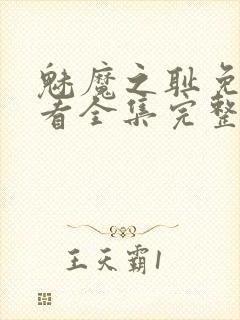 魅魔之耻免
着全集完整
王天霸1